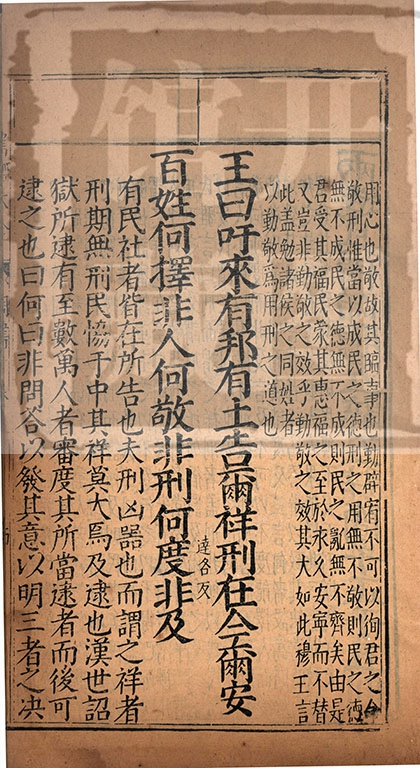 用心也敬故其臨事也勤辟宥不可以徇君之
敬刑惟當以成民之德刑之用無不敬則民之德
無不成民之德無不成則民之亂無不齊矣由是
君受其福民蒙其惠福之至於永久安寧而不替
又豈非勤敬之效乎勤敬之效其大如此穆王言
此蓋勉諸侯之同姓者
以勤敬爲用刑之道也
王曰吁來有邦有土告爾祥刑在今爾安
百姓何擇非人何敬非刑何度達各反非及
有民社者皆在所告也夫刑凶器也而謂之祥者
刑期無刑民恊于中其祥莫大焉及逮也漢世詔
獄所逮有至數萬人者審度其所當逮者而後可
逮之也曰何曰非問答以發其意以明三者之决